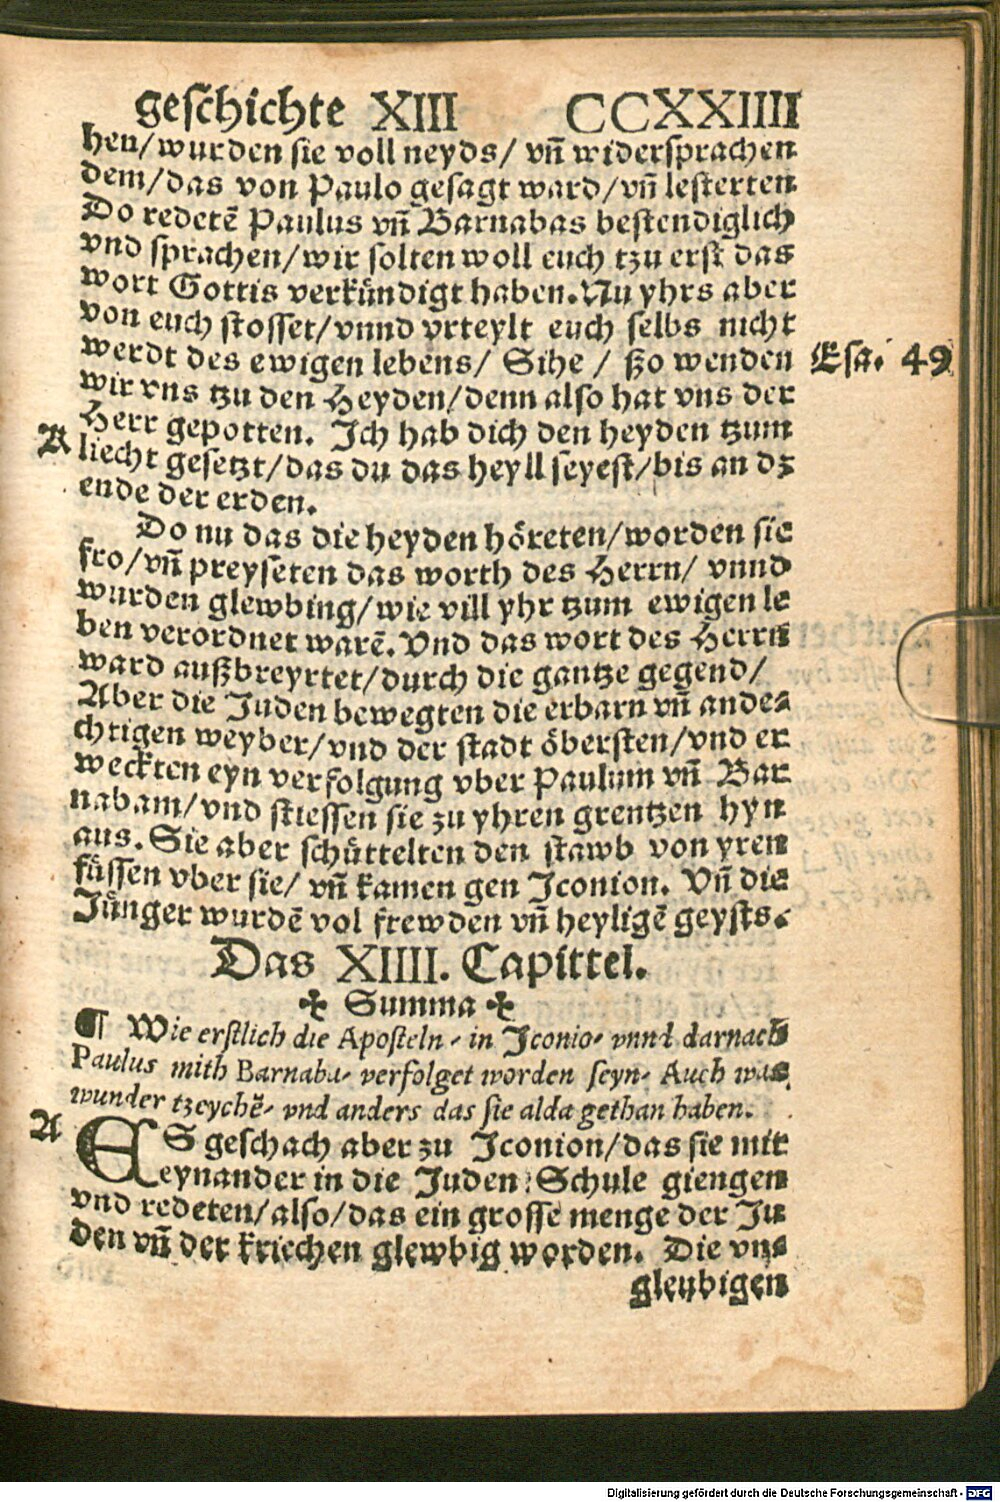 geschichte XIII CCXXIIII
hen/wurden sie voll neyds/ vñ widersprachen
dem/das von Paulo gesagt ward/vñ lesterten
Do redetẽ Paulus vñ Barnabas bestendiglich
vnd sprachen/wir solten woll euch tzu erst das
wort Gottis verkündigt haben. Nu yhrs aber
von euch stosset/vnnd vrteylt euch selbs nicht
werdt des ewigen lebens/ Sihe / ßo wenden
Esa. 49
wir vns tzu den Heyden/denn also hat vns der
Herr gepotten. Ich hab dich den heyden tzum
A
liecht gesetzt/das du das heyll seyest/bis an dz
ende der erden.
Do nu das die heyden höreten/worden sie
fro/vñ preyseten das worth des Herrn/ vnnd
wurden glewbing/wie vill yhr tzum ewigen le
ben verordnet warẽ. Vnd das wort des Herrn
ward außbreyrtet/durch die gantze gegend/
Aber die Juden bewegten die erbarn vñ ande-
chtigen weyber/vnd der stadt öbersten/vnd er
weckten eyn verfolgung vber Paulum vñ Bar
nabam/vnd stiessen sie zu yhren grentzen hyn
aus. Sie aber schüttelten den stawb von yren
füssen vber sie/ vñ kamen gen Iconion. Vñ die
Jünger wurdẽ vol frewden vñ heyligẽ geysts.
Das XIIII. Capittel.
✣ Summa ✣
¶ Wie erstlich die Aposteln / in Iconio / vnnd darnach
Paulus mith Barnaba / verfolget worden seyn / Auch was
wunder tzeychẽ / vnd anders das sie alda gethan haben.
A
ES geschach aber zu Iconion/das sie mit
eynander in die Juden Schule giengen
vnd redeten/also/das ein grosse menge der Ju
den vñ der kriechen glewbig worden. Die vn-
gleubigen
Digitalisierung gefördert durch die Deutsche Forschungsgemeinschaft - DFG